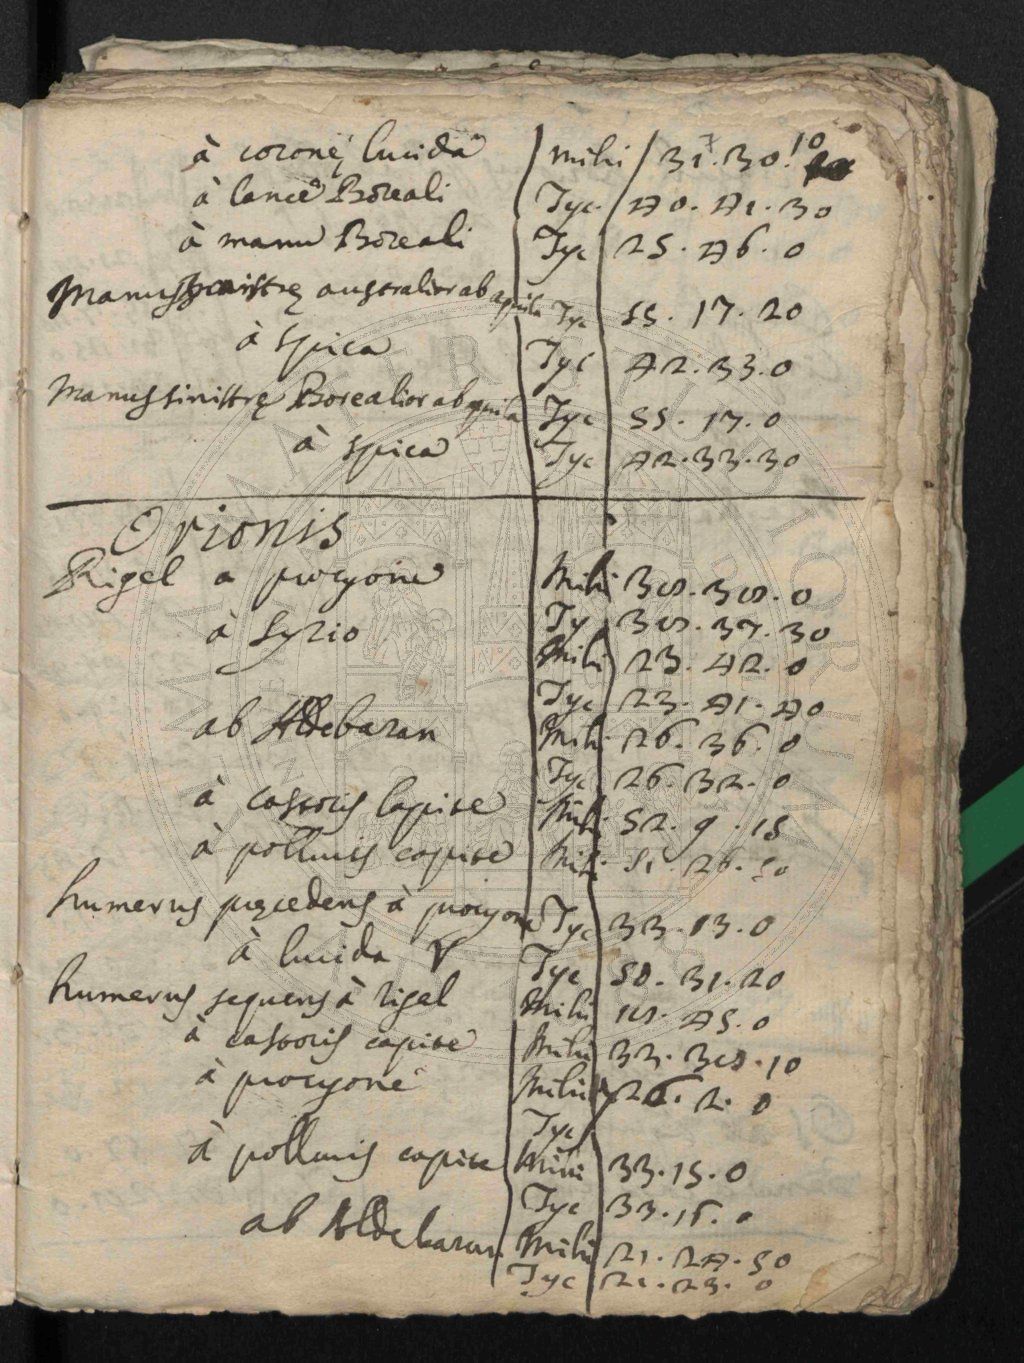 à coronę lucida | mihi | 31. 30. 10
à lance Boreali | Tyc. | 40. 41. 30
à manu Boreali | Tyc | 25. 46. 0
Manus sinistrę australior ab aquila | Tyc | 55. 17. 20
à spica | Tyc | 42. 33. 0
Manus sinistrę Borealior ab aquila | Tyc | 55. 17. 0
à spica | Tyc | 42. 33. 30
Orionis
Rigel a procyone | Mihi | 38. 38. 0
Ty | 38. 37. 30
à Syrio | Mihi | 23. 42. 0
Tyc | 23. 41. 40
ab Aldebaran | Mihi | 26. 36. 0
Tyc | 26. 32. 0
à castoris capite | Mihi | 52. 9. 15
à pollucis capite | Mihi | 51. 26. 50
humerus pręcedens à procyone | Tyc | 33. 13. 0
à lucida ♈ | Tyc | 50. 31. 20
humerus sequens à rigel | Mihi | 18. 45. 0
à castoris capite | Mihi | 33. 38. 10
à procyone | Mihi | 26. 2. 0
Tyc
à pollucis capite | Mihi | 33. 15. 0
Tyc | 33. 15. 0
ab Aldebaran | Mihi | 21. 24. 50
Tyc | 21. 23. 0